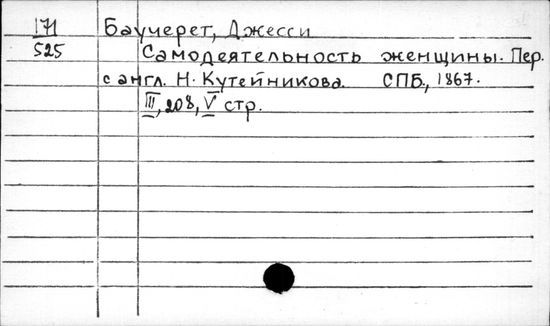 171 Баучерет, Джесси
525 Самодеятельность женщины. Пер.
с англ. Н. Кутейникова. СПБ., 1867.
III, 208, V стр.